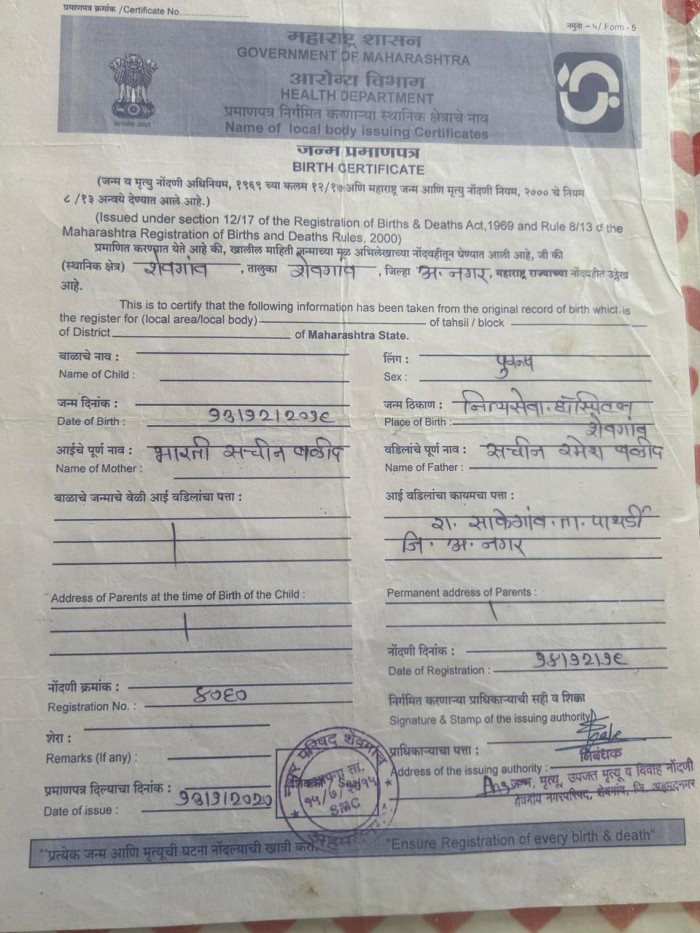 प्रमाणपत्र क्रमांक /Certificate No.
नमुना - ५/ Form - 5
महाराष्ट्र शासन
GOVERNMENT OF MAHARASHTRA
आरोग्य विभाग
HEALTH DEPARTMENT
प्रमाणपत्र निर्गमित करणाऱ्या स्थानिक क्षेत्राचे नाव
Name of local body issuing Certificates
जन्म प्रमाणपत्र
BIRTH CERTIFICATE
(जन्म व मृत्यु नोंदणी अधिनियम, १९६९ च्या कलम १२/१७ आणि महाराष्ट्र जन्म आणि मृत्यु नोंदणी नियम, २००० चे नियम
८ /१३ अन्वये देण्यात आले आहे.)
(Issued under section 12/17 of the Registration of Births & Deaths Act,1969 and Rule 8/13 of the
Maharashtra Registration of Births and Deaths Rules, 2000)
प्रमाणित करण्यात येते आहे की, खालील माहिती जन्माच्या मूळ अभिलेखाच्या नोंदवहीतून घेण्यात आली आहे, जी की
(स्थानिक क्षेत्र) शेवगांव , तालुका शेवगांव , जिल्हा अ. नगर, महाराष्ट्र राज्याच्या नोंदवहीत उल्लेख
आहे.
This is to certify that the following information has been taken from the original record of birth which is
the register for (local area/local body) of tahsil / block
of District of Maharashtra State.
बाळाचे नाव :
Name of Child :
लिंग :
Sex :
जन्म दिनांक :
Date of Birth : १३।१२।२०१९
जन्म ठिकाण : नित्यसेवा हॉस्पिटल
Place of Birth : शेवगांव
आईचे पूर्ण नाव : भारती सचीन
Name of Mother :
वडिलांचे पूर्ण नाव : सचीन रमेश
Name of Father :
बाळाचे जन्माचे वेळी आई वडिलांचा पत्ता :
आई वडिलांचा कायमचा पत्ता :
रा. साकेगांव ता. पाथर्डी
जि. अ. नगर
Address of Parents at the time of Birth of the Child :
Permanent address of Parents :
नोंदणी दिनांक : १४।१२।१९
Date of Registration :
नोंदणी क्रमांक : ४०६०
Registration No. :
निर्गमित करणाऱ्या प्राधिकाऱ्याची सही व शिक्का
Signature & Stamp of the issuing authority
शेरा :
Remarks (If any) :
निबंधक
प्राधिकाऱ्याचा पत्ता :
Address of the issuing authority :
जन्म, मृत्यू, उपजत मृत्यू व विवाह नोंदणी
शेवगांव नगरपरिषद, शेवगांव, जि. अहमदनगर
प्रमाणपत्र दिल्याचा दिनांक :
Date of issue : १३।१।२०२०
नगर परिषद शेवगांव
स्थापना ता.
१५/७/२०१५
SMC
"प्रत्येक जन्म आणि मृत्यूची घटना नोंदल्याची खात्री करा"
"Ensure Registration of every birth & death"